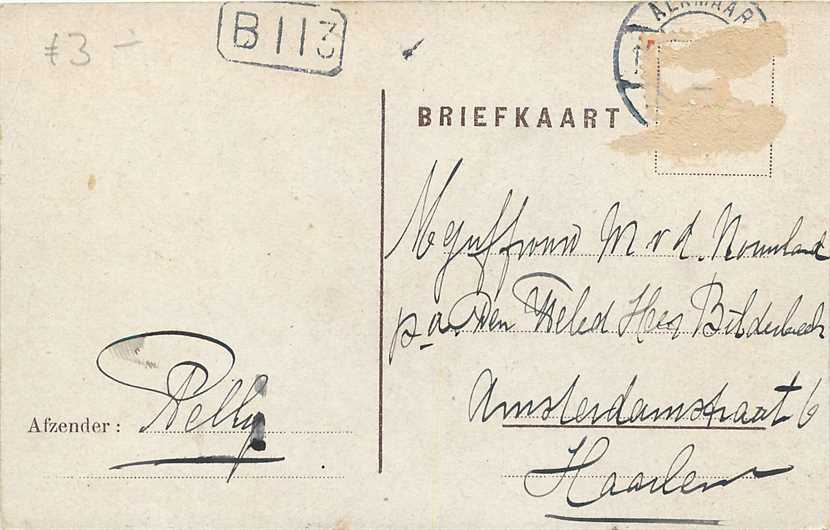 £3 –
B113
ALKMAAR
BRIEFKAART
Mejuffrouw M v d.
p a. Den Weled Heer Bilderbeek
Amsterdamstraat 6
Haarlem
Afzender: Nelly